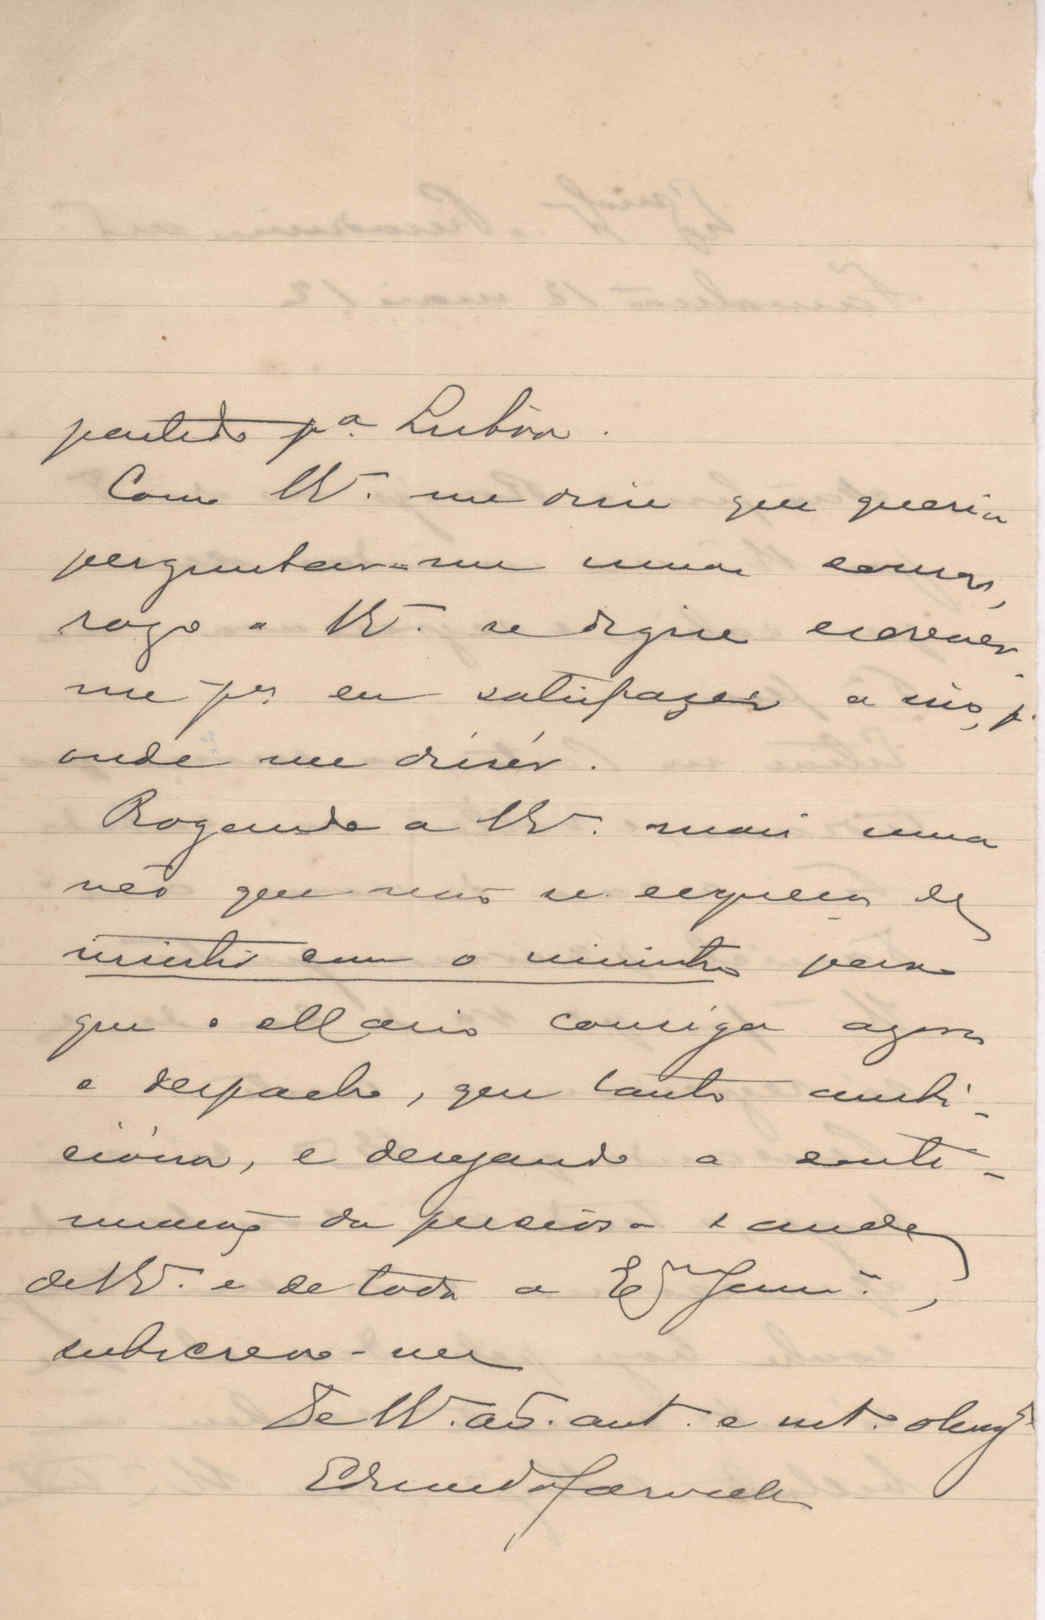 partido pª. Lisbôa.
Como V. Eª. me disse que queria
perguntar-me umas cousas,
rogo a V. Eª. se digne escrever
me pª. eu satisfazer a isso, pª.
onde me dissér.
Rogando a V. Eª. mais uma
vês que não se esqueça de
insistir com o ministro para
que o Mario consiga agora
o despacho, que tanto ambi-
ciona, e desejando a conti-
nuação da preciosa saude
de V. Eª. e de toda a Exª. Famª.,
subscrevo-me
De V. Eª. att. e mt.º obrigº